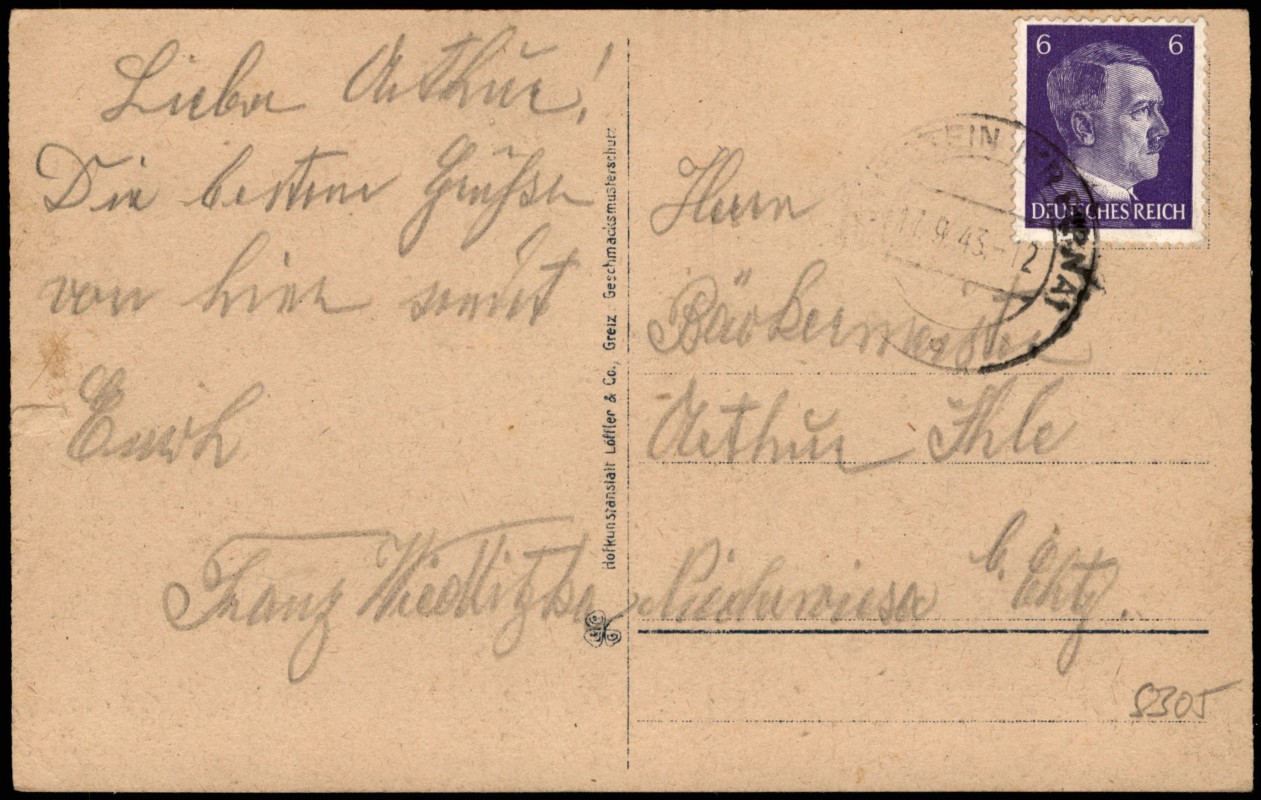 Lieber Arthur!
Die besten Grüße
von hier sendet
Euch
Franz
Hofkunstanstalt Löffler & Co., Greiz Geschmacksmusterschutz
6 6
DEUTSCHES REICH
11.9.43.-12
Herrn
Bäckermeister
Arthur Ihle
Niederwiesa b. Chtz.
8305